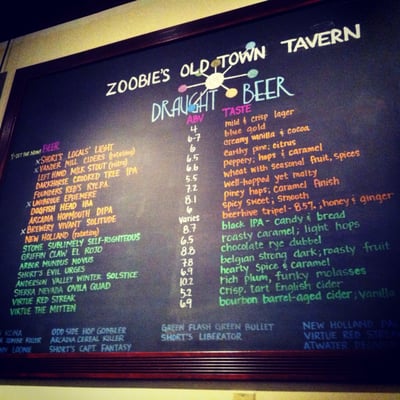 ZOOBIE'S OLD TOWN TAVERN
DRAUGHT BEER
BEER ABV TASTE
SHORT'S LOCALS' LIGHT 4 mild & crisp lager
VANDER MILL CIDERS (rotating) 6-7 blue gold
LEFT HAND MILK STOUT (nitro) 6 creamy vanilla & cocoa
DARKHORSE CROOKED TREE IPA 6.5 earthy pine; citrus
FOUNDERS RED'S RYEPA 6.6 peppery; hops & caramel
UNIBROUE EPHEMERE 5.5 wheat with seasonal fruit, spices
DOGFISH HEAD IPA 7.2 well-hopped yet malty
ARCADIA HOPMOUTH DIPA 8.1 piney hops; caramel finish
BREWERY VIVANT SOLITUDE 6 spicy sweet; smooth
NEW HOLLAND (rotating) Varies beerhive tripel - 8.5%, honey & ginger
STONE SUBLIMELY SELF-RIGHTEOUS 8.7 black IPA - candy & bread
GRIFFIN CLAW EL ROJO 6.5 roasty caramel; light hops
ARBOR MUNDUS NOVUS 8.8 chocolate rye dubbel
SHORT'S EVIL URGES 8.8 belgian strong dark; roasty fruit
ANDERSON VALLEY WINTER SOLSTICE 6.9 hearty spice & caramel
SIERRA NEVADA OVILA QUAD 10.2 rich plum, funky molasses
VIRTUE RED STREAK 5.2 Crisp, tart English cider
VIRTUE THE MITTEN 6.9 bourbon barrel-aged cider; vanilla
ODD SIDE HOP GOBBLER GREEN FLASH GREEN BULLET NEW HOLLAND
ARCADIA CEREAL KILLER SHORT'S LIBERATOR VIRTUE RED STREAK
SHORT'S CAPT. FANTASY ATWATER